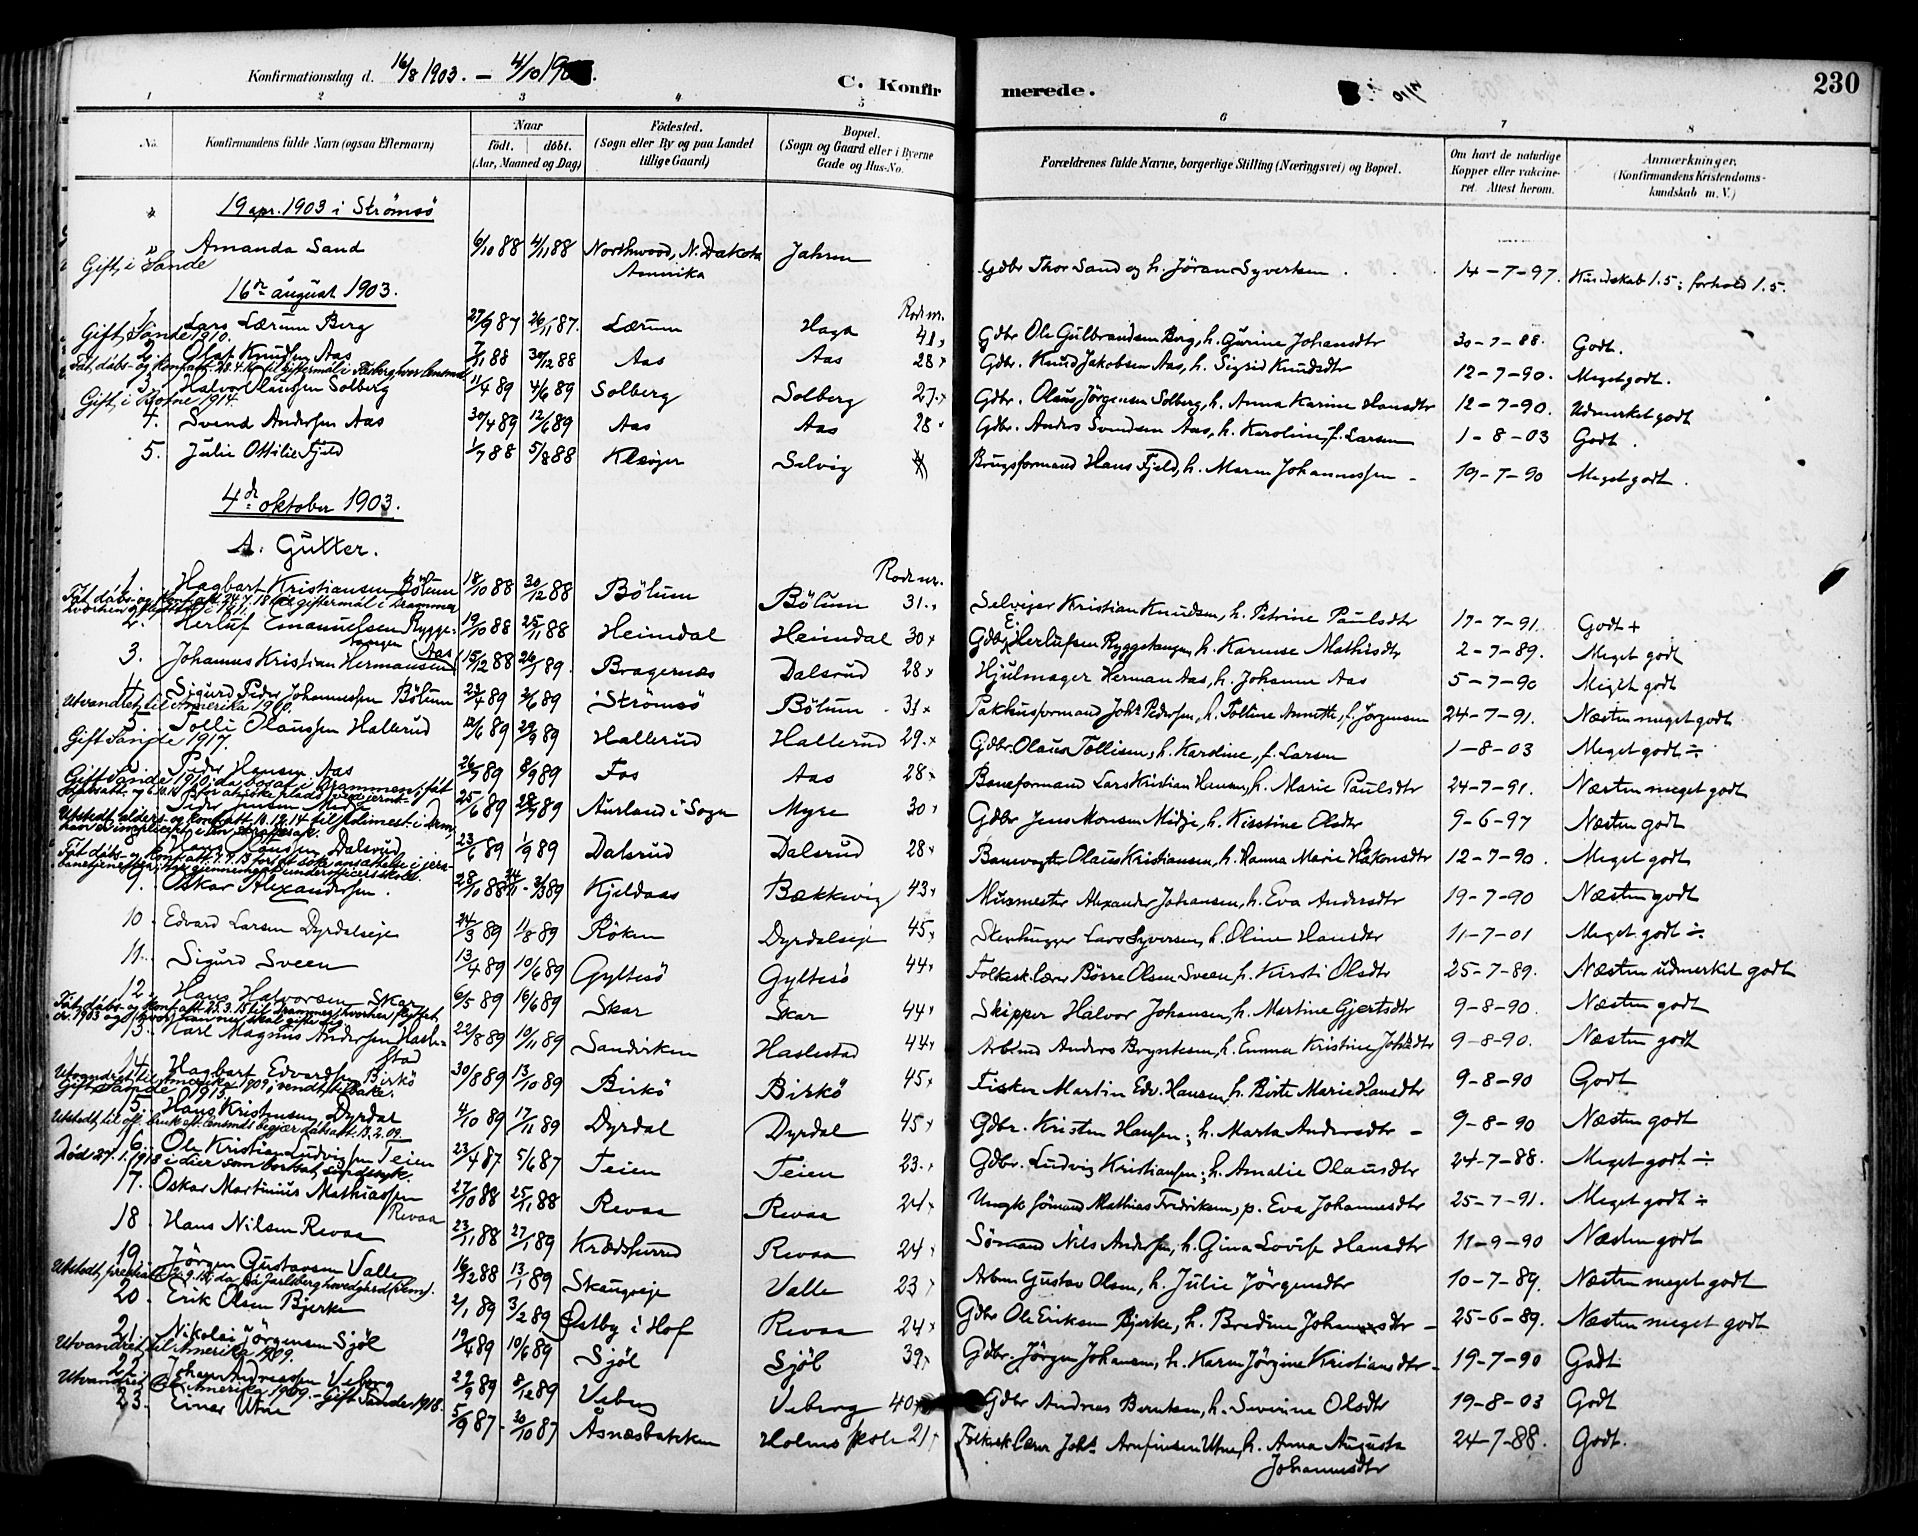 Konfirmationsdag d. 16/8 1903. – 4/10 19
C. Konfirmerede.
230
1 2 3 4 5 6 7 8
No. Konfirmandens fulde Navn (ogsaa Efternavn) Naar födt. döbt. (Aar, Maaned og Dag) Födested. (Sogn eller By og paa Landet tillige Gaard) Bopæl. (Sogn og Gaard eller i Byerne Gade og Hus-No. Forældrenes fulde Navne, borgerlige Stilling (Næringsvei) og Bopæl. Om havt de naturlige Kopper eller vakcineret. Attest herom. Anmærkninger. (Konfirmandens Kristendomskundskab m. V.)
19 apr. 1903 i Strömsö
Amanda Sand 6/10 88 4/11 88 Northwood, N. Dakota Amerika Jahren Gdbr Thor Sand og h. Jöran Syvertsen 14-7-97. Kundskab 1.5; forhold 1.5.
Gift i Sande
16de august 1903.
Rodenr.
1. Lars Lærum Berg 27/9 87 26/11 87. Lærum Haga 41, Gdbr Ole Gulbrandsen Berg, h. Gurine Johansdtr 30-7-88. Godt.
Gift, Sande 1910.
2. Olaf Knudsen Aas 7/11 88 30/12 88 Aas Aas 28 Gdbr. Knud Jakobsen Aas, h. Sigrid Knudsdtr 12-7-90. Meget godt.
3. Halvor Olaussen Solberg 11/4 89 4/6 89 Solberg Solberg 27 Gdbr. Olaus Jörgensen Solberg, h. Anna Karine Hansdtr 12-7-90. Udmerket godt
Gift, i Botne 1914.
4. Svend Andersen Aas 30/4 89 12/6 89 Aas Aas 28 Gdbr. Anders Svendsen Aas, h. Karoline, f. Larsen 1-8-03 Godt.
5. Julie Ottilie Fjeld 1/7 88 5/8 88 Klæöyer Selvig Brugsformand Hans Fjeld, h. Maren Johannessen 19-7-90 Meget godt.
4de oktober 1903.
A. Gutter.
Rodenr.
1. Hagbart Kristiansen Bölum 18/10 88 30/12 88 Bölum Bölum 31. Selveier Kristian Knudsen, h. Petrine Paulsdtr 17-7-91. Godt +
2. Herluf Emanuelsen Ryggetangen 19/10 88 25/11 88 Heimdal Heimdal 30 Gdbr E. Herlufsen Ryggetangen, h. Karense Mathisdtr 2-7-89. Meget godt
3. Johannes Kristian Hermansen (Aas) 15/12 88 26/1 89. Bragernæs Dalsrud 28 Hjulmager Herman Aas, h. Johanne Aas 5-7-90 Meget godt
4. Sigurd Peder Johannessen Bölum 23/4 89 2/6 89 Strömsö Bölum 31 Pakhusformand Johs Pedersen, h. Tolline Annette, f. Jörgensen 24-7-91. Næsten meget godt
Utvandret til Amerika 1910.
5. Tolli Olaussen Hallerud 12/6 89 29/9 89 Hallerud Hallerud 29. Gdbr. Olaus Tollisen, h. Karoline, f. Larsen 1-8-03 Meget godt ÷
Gift Sande 1917.
6. Peder Hansen Aas 26/7 89 8/9 89 Fos Aas 28 Baneformand Lars Kristian Hansen, h. Marie Paulsdtr 24-7-91. Næsten meget godt
7. Peder Jensen Midje 25/6 89 28/7 89 Aurland i Sogn Myre 30 Gdbr Jens Monsen Midje, h. Kisstine Olsdtr 9-6-97 Næsten godt
8. Hans Olaussen Dalsrud 23/6 89 1/9 89 Dalsrud Dalsrud 28 Banevogter Olaus Kristiansen, h. Hanna Marie Håkonsdtr 12-7-90. Meget godt
9. Oskar Alexandersen. 28/10 88 24/11 - 3/3 89 Kjeldaas Bækkevig 43 Murmester Alexander Johansen, h. Eva Andersdtr 19-7-90 Næsten godt
10 Edvard Larsen Dyrdalseje 24/3 89 11/8 89 Röken Dyrdalseje 45 Stenhugger Lars Syversen, h. Oline Hansdtr 11-7-01 Meget godt ÷
11. Sigurd Sveen 13/4 89 10/6 89 Gyltesö Gyltesö 44 Folkesk.lærer Börre Olsen Sveen, h. Kirsti Olsdtr 25-7-89. Næsten udmerket godt
12. Hans Halvorsen Skar 6/5 89 16/6 89 Skar Skar 44 Skipper Halvor Johansen, h. Martine Gjertsdtr 9-8-90. Næsten godt
13. Karl Magnus Andersen Haslestad 22/8 89 10/11 89 Sandviken Haslestad 44 Arbmd Anders Bryntesen, h. Emma Kristine Johsdtr 9-8-90. Næsten godt
14. Hagbart Edvardsen Birkö 30/8 89 13/10 89 Birkö Birkö 45 Fisker Martin Edv. Hansen, h. Birte Marie Hansdtr 9-8-90 Godt
Utvandret til Amerika 1909, vendt tilbake.
Gift Sande 1913.
15. Hans Kristensen Dyrdal 4/10 89 17/11 89 Dyrdal Dyrdal 45 Gdbr. Kristen Hansen; h. Marta Andersdtr 9-8-90 Næsten godt
16. Ole Kristian Ludvigsen Teien 23/4 87 5/6 87 Teien Teien 23. Gdbr. Ludvig Kristiansen; h. Amalie Olausdtr 24-7-88. Meget godt ÷
17. Oskar Martinius Mathiassen Revaa 27/10 88 25/11 88 Revaa Revaa 24 Ungk Sömand Mathias Fredriksen, p. Eva Johannesdtr 25-7-91. Meget godt ÷
18 Hans Nilsen Revaa 23/11 88 27/1 89 Krödsherred Revaa 24 Sömand Nils Andersen, h. Gina Lovise Hansdtr 11-9-90 Næsten godt
19. Jörgen Gustavsen Valle 16/12 88 13/1 89 Skaugeeje Valle 23 Arbm Gustav Olsen, h. Julie Jörgensdtr 10-7-89. Næsten meget godt
20. Erik Olsen Bjerke 2/1 89 3/2 89 Østby i Hof Revaa 24 Gdbr Ole Eriksen Bjerke, h. Bredine Johansdtr 25-6-89. Næsten meget godt
21. Nikolai Jörgensen Sjöl 19/4 89 10/6 89 Sjöl Sjöl 39 Gdbr. Jörgen Johansen, h. Karen Jörgine Kristiansdtr 19-7-90 Godt
Utvandret til Amerika 1909.
22. Johan Andreassen Veberg 27/9 89 8/12 89 Veberg Veberg 40 Gdbr Andreas Berntsen, h. Severine Olsdtr 19-8-03 Godt
Utvandret til Amerika 1909. – Gift Sande 1918.
23. Einar Utne 5/9 87 - 30/10 87 Åsnæsbakken Holms skole 21 Folkesk.lærer Johs Arnfinsen Utne, h. Anna Augusta Johannesdtr 24-7-88. Godt.